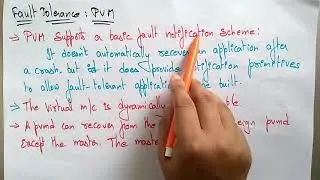 Fault Tolerance: PVM
→ PVM supports a basic fault notification scheme:
It doesn't automatically recover an application after
a crash but it does provide notification primitives
to allow fault-tolerant applications be built.
→ The virtual m/c is dynamically
→ A pvmd can recover from the pvmd
Except the master. The master